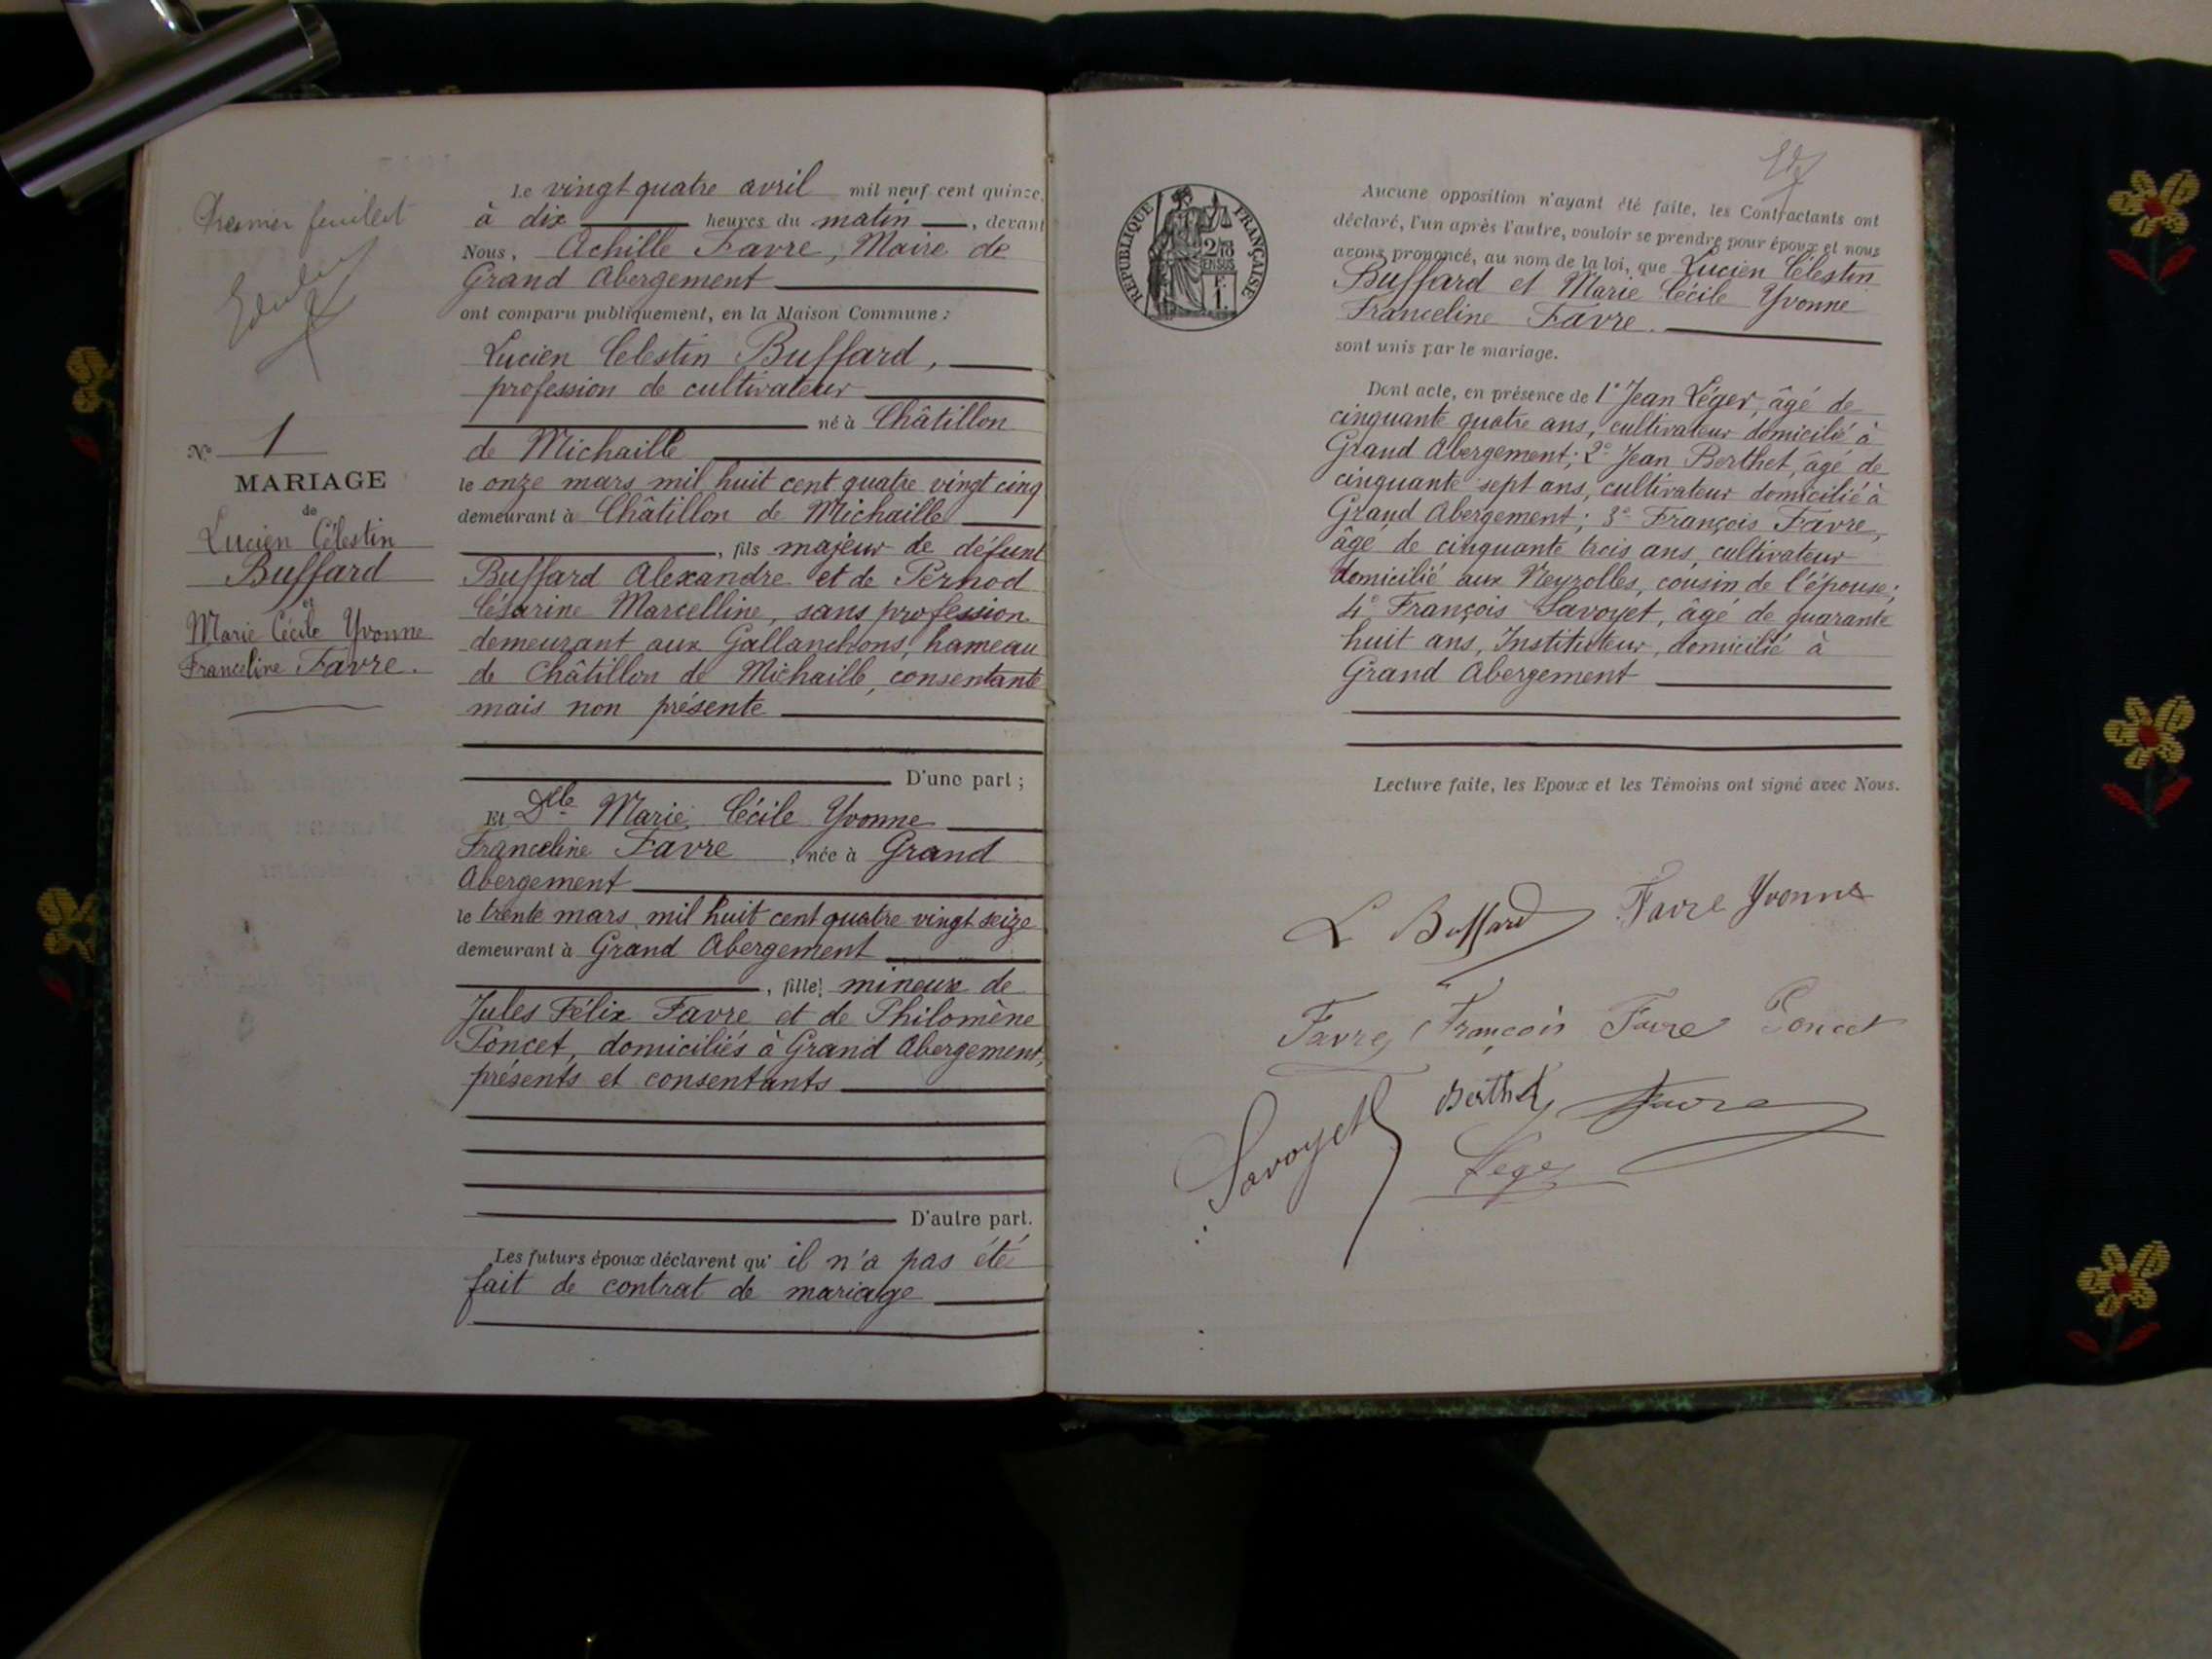 Premier feuillet
N° 1
MARIAGE
de
Lucien Célestin
Buffard
et
Marie Cécile Yvonne
Franceline Favre.
Le vingt quatre avril mil neuf cent quinze,
à dix heures du matin, devant
Nous, Achille Favre, Maire de
Grand Abergement
ont comparu publiquement, en la Maison Commune :
Lucien Célestin Buffard,
profession de cultivateur
né à Châtillon
de Michaille
le onze mars mil huit cent quatre vingt cinq
demeurant à Châtillon de Michaille
, fils majeur de défunt
Buffard Alexandre et de Pernod
Césarine Marcelline, sans profession
demeurant aux Gallanchons, hameau
de Châtillon de Michaille, consentante
mais non présente
D'une part ;
Et Dlle Marie Cécile Yvonne
Franceline Favre, née à Grand
Abergement
le trente mars mil huit cent quatre vingt seize
demeurant à Grand Abergement
, fille mineure de
Jules Félix Favre et de Philomène
Poncet, domiciliés à Grand Abergement,
présents et consentants
D'autre part.
Les futurs époux déclarent qu' il n'a pas été
fait de contrat de mariage
RÉPUBLIQUE FRANÇAISE
2/10
EN SUS
F.
1.
Aucune opposition n'ayant été faite, les Contractants ont
déclaré, l'un après l'autre, vouloir se prendre pour époux et nous
avons prononcé, au nom de la loi, que Lucien Célestin
Buffard et Marie Cécile Yvonne
Franceline Favre.
sont unis par le mariage.
Dont acte, en présence de 1° Jean Léger, âgé de
cinquante quatre ans, cultivateur domicilié à
Grand Abergement; 2° Jean Berthet, âgé de
cinquante sept ans, cultivateur domicilié à
Grand Abergement; 3° François Favre,
âgé de cinquante trois ans, cultivateur
domicilié aux Neyrolles, cousin de l'épouse;
4° François Savoyet, âgé de quarante
huit ans, Instituteur, domicilié à
Grand Abergement
Lecture faite, les Epoux et les Témoins ont signé avec Nous.
L Buffard Favre Yvonne
Favre François Favre Poncet
Savoyet Berthet Favre
Léger